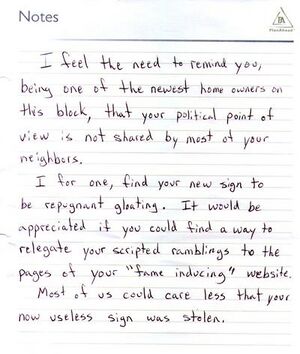 Notes
PlanAhead
I feel the need to remind you,
being one of the newest home owners on
this block, that your political point of
view is not shared by most of your
neighbors.
I for one, find your new sign to
be repugnant gloating. It would be
appreciated if you could find a way to
relegate your scripted ramblings to the
pages of your "fame inducing" website.
Most of us could care less that your
now useless sign was stolen.